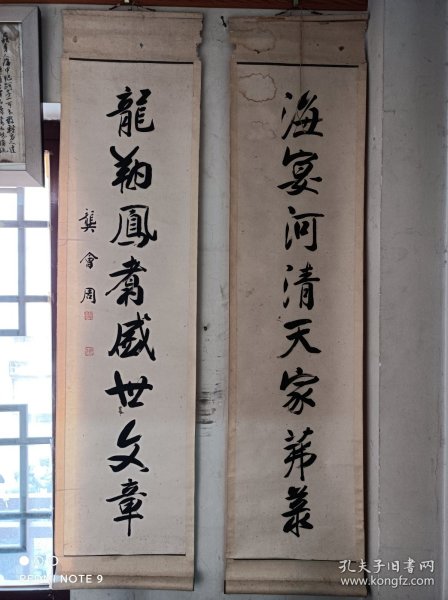 海宴河清天家苐菉
龍翔鳳翥盛世文章
龔會周
REDMI NOTE 9
孔夫子旧书网
www.kongfz.com